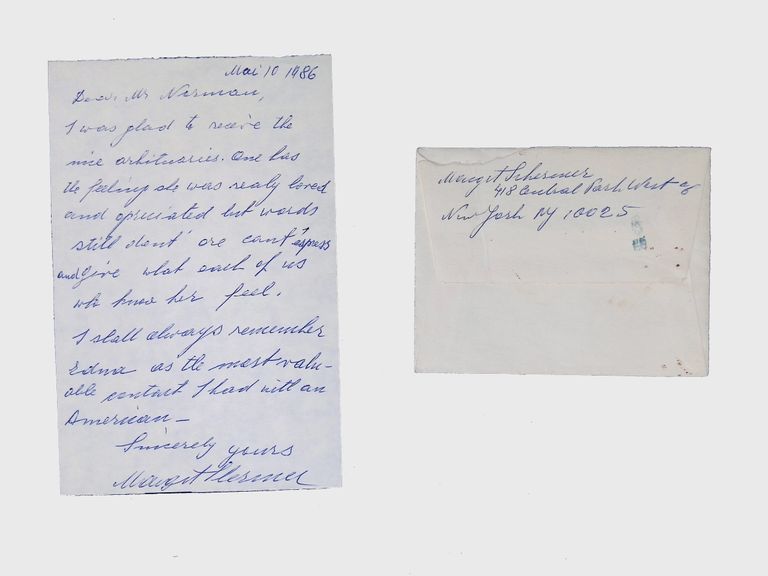 Mai 10 1986
Dear Mr Norman,
I was glad to receive the
nice orbituaries. One has
the feeling she was realy loved
and apriciated but words
still dont' ore cant' express
and give what each of us
who know her feel.
I shall always remember
Edna as the most valu-
able contact I had with an
American—
Sincerely yours
Margit Schermer
Margit Schermer
418 Central Park West
New York NY 10025